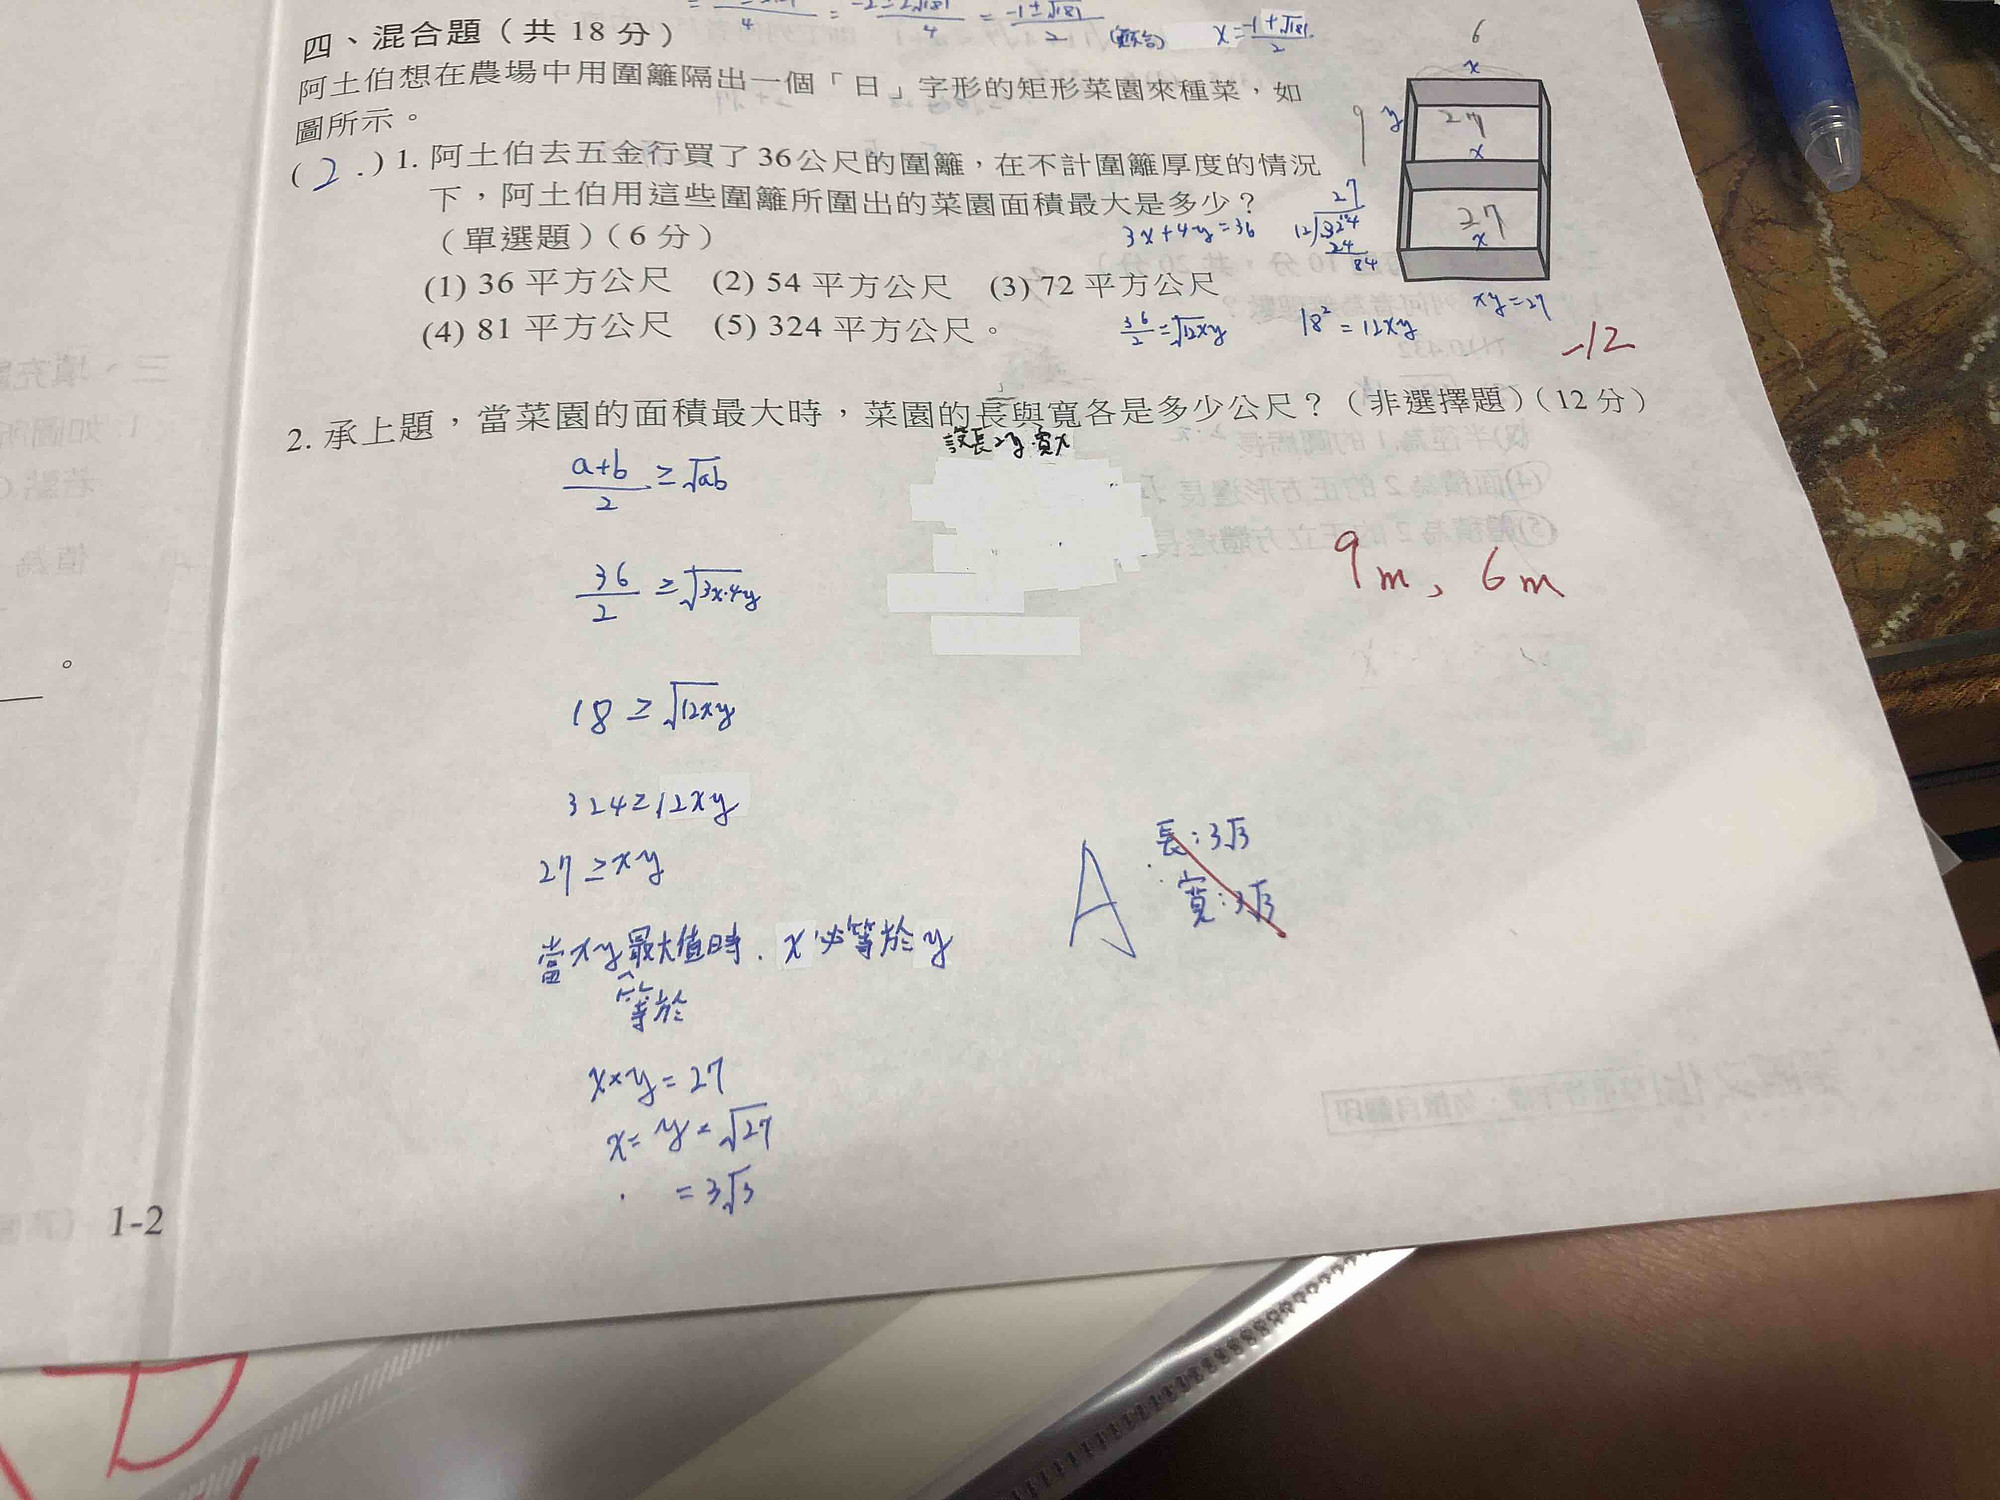 = -1±√181 / 2
x = -1+√181 / 2
四、混合題（共 18 分）
6
x
阿土伯想在農場中用圍籬隔出一個「日」字形的矩形菜園來種菜，如
圖所示。
9 y 27
x
27
x
( 2. ) 1. 阿土伯去五金行買了 36公尺的圍籬，在不計圍籬厚度的情況
下，阿土伯用這些圍籬所圍出的菜園面積最大是多少？
（單選題）（6 分）
3x+4y=36
27
12/324
24
84
(1) 36 平方公尺 (2) 54 平方公尺 (3) 72 平方公尺
(4) 81 平方公尺 (5) 324 平方公尺。
36/2 = √12xy
18² = 12xy
xy=27
-12
2. 承上題，當菜園的面積最大時，菜園的長與寬各是多少公尺？（非選擇題）（12 分）
設長2y.寬x
a+b / 2 ≥ √ab
36/2 ≥ √3x·4y
9m、6m
18 ≥ √12xy
324≥12xy
27 ≥xy
A 長:3√3
寬:3√3
當xy最大值時. x必等於y
等於
x×y=27
x= y= √27
= 3√3
1-2